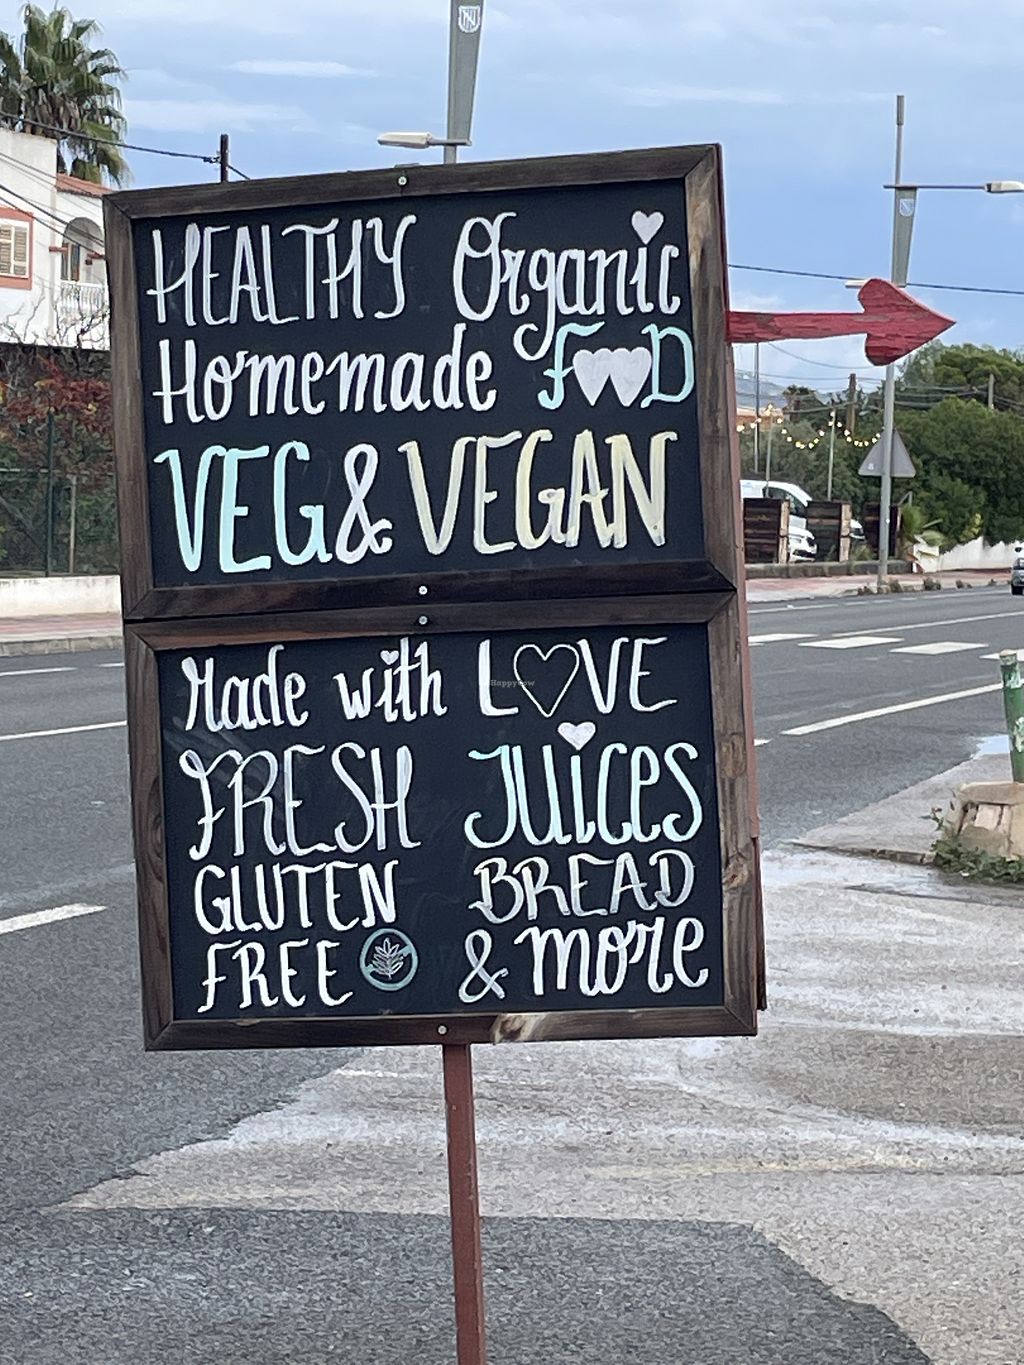 HEALTHY Organic
Homemade FOOD
VEG & VEGAN
Made with LOVE
HappyCow
FRESH JUICES
GLUTEN BREAD
FREE & more